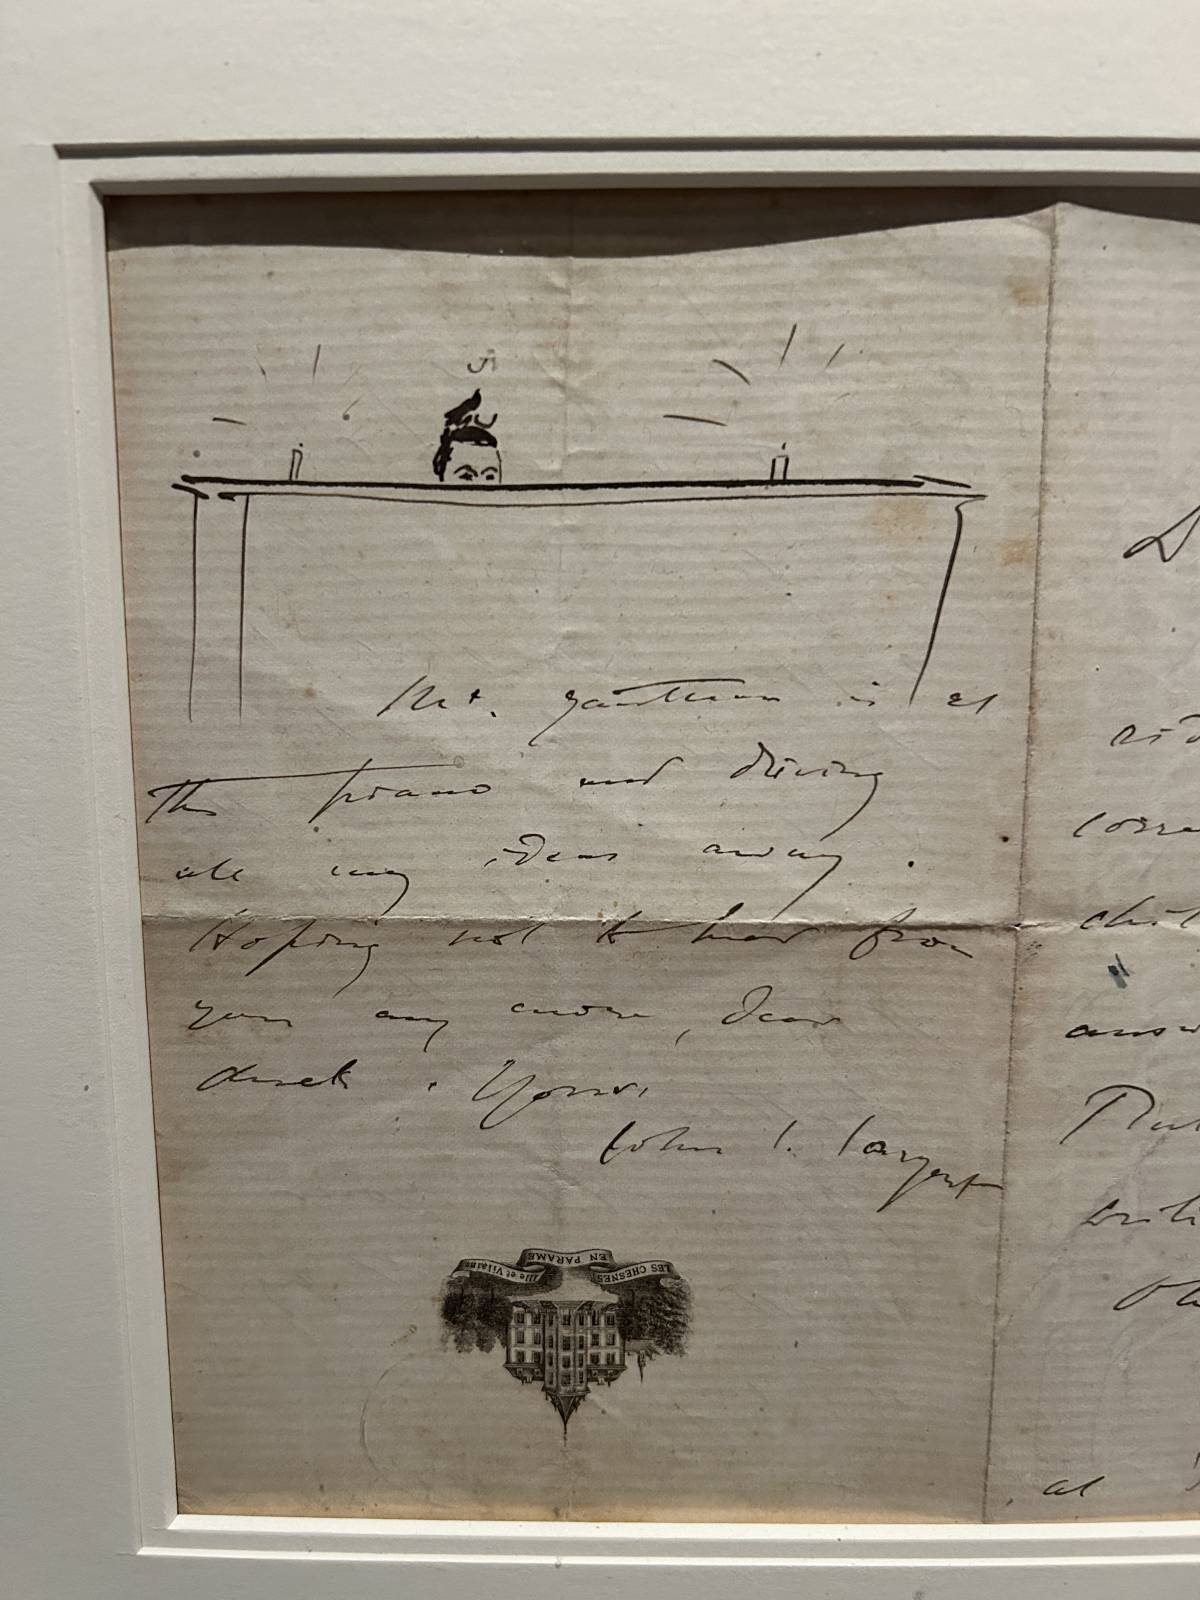 Mr. Gautreau is at
the piano and driving
all my ideas away.
Hoping not to hear from
you any more, dear
duck. Yours,
John S. Sargent
LES CHESNES
EN PARAMÉ
Ille et Vilaine
at